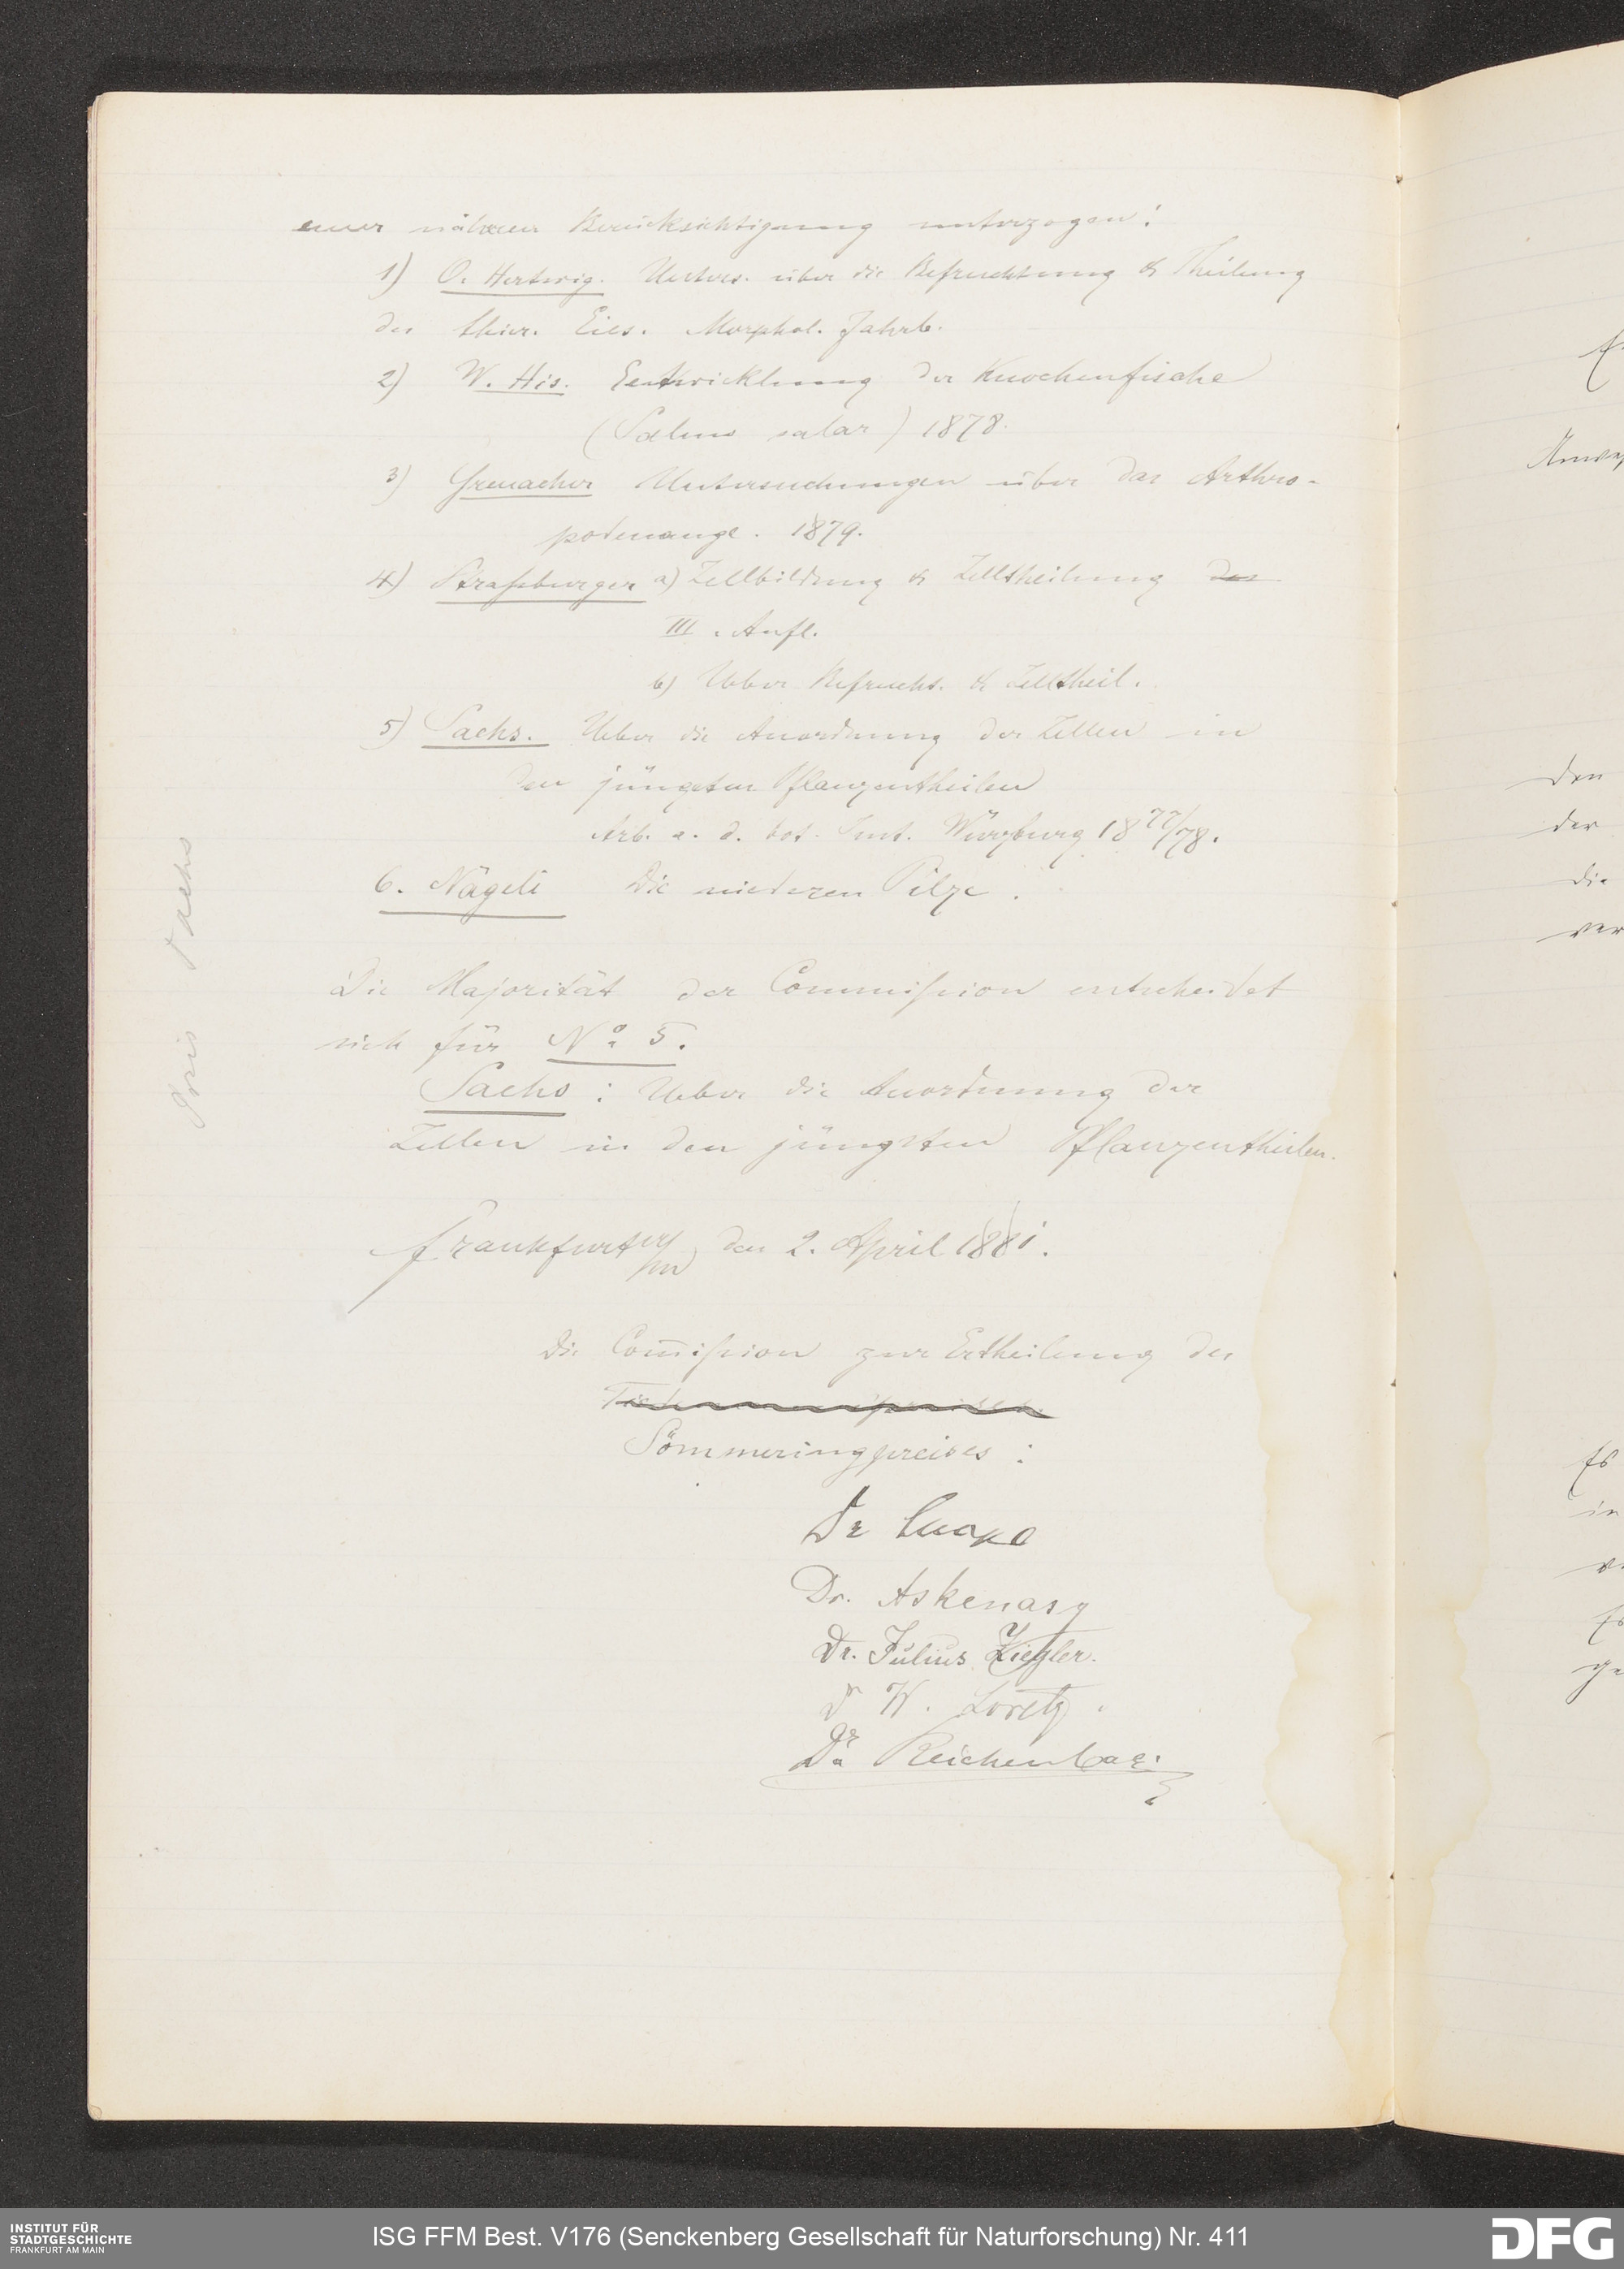 einer näheren Berücksichtigung unterzogen:
1) O. Hertwig. Unters. über die Befruchtung & Theilung
des thier. Eies. Morphol. Jahrb.
2) W. His. Entwicklung der Knochenfische
(Salmo salar) 1878.
3) Grenacher Untersuchungen über das Arthro-
podenauge. 1879.
4) Straßburger a) Zellbildung & Zelltheilung der
III. Aufl.
b) Ueber Befrucht. & Zelltheil.
5) Sachs. Ueber die Anordnung der Zellen in
den jüngsten Pflanzentheilen
Arb. a. d. bot. Inst. Würzburg 1877/78.
6. Nägeli Die niederen Pilze.
Die Majorität der Commißion entscheidet
sich für No 5.
Sachs: Ueber die Anordnung der
Zellen in den jüngsten Pflanzentheilen.
Frankfurt a/m, den 2. April 1881.
Die Com̅ißion zur Ertheilung des
Sömmeringpreises:
Dr
Dr. Askenasy
Dr. Julius Ziegler.
Dr W. Loretz.
Dr Reichenbach
Preis Sachs
den
der
die
ver
Es
in
INSTITUT FÜR
STADTGESCHICHTE
FRANKFURT AM MAIN
ISG FFM Best. V176 (Senckenberg Gesellschaft für Naturforschung) Nr. 411
DFG